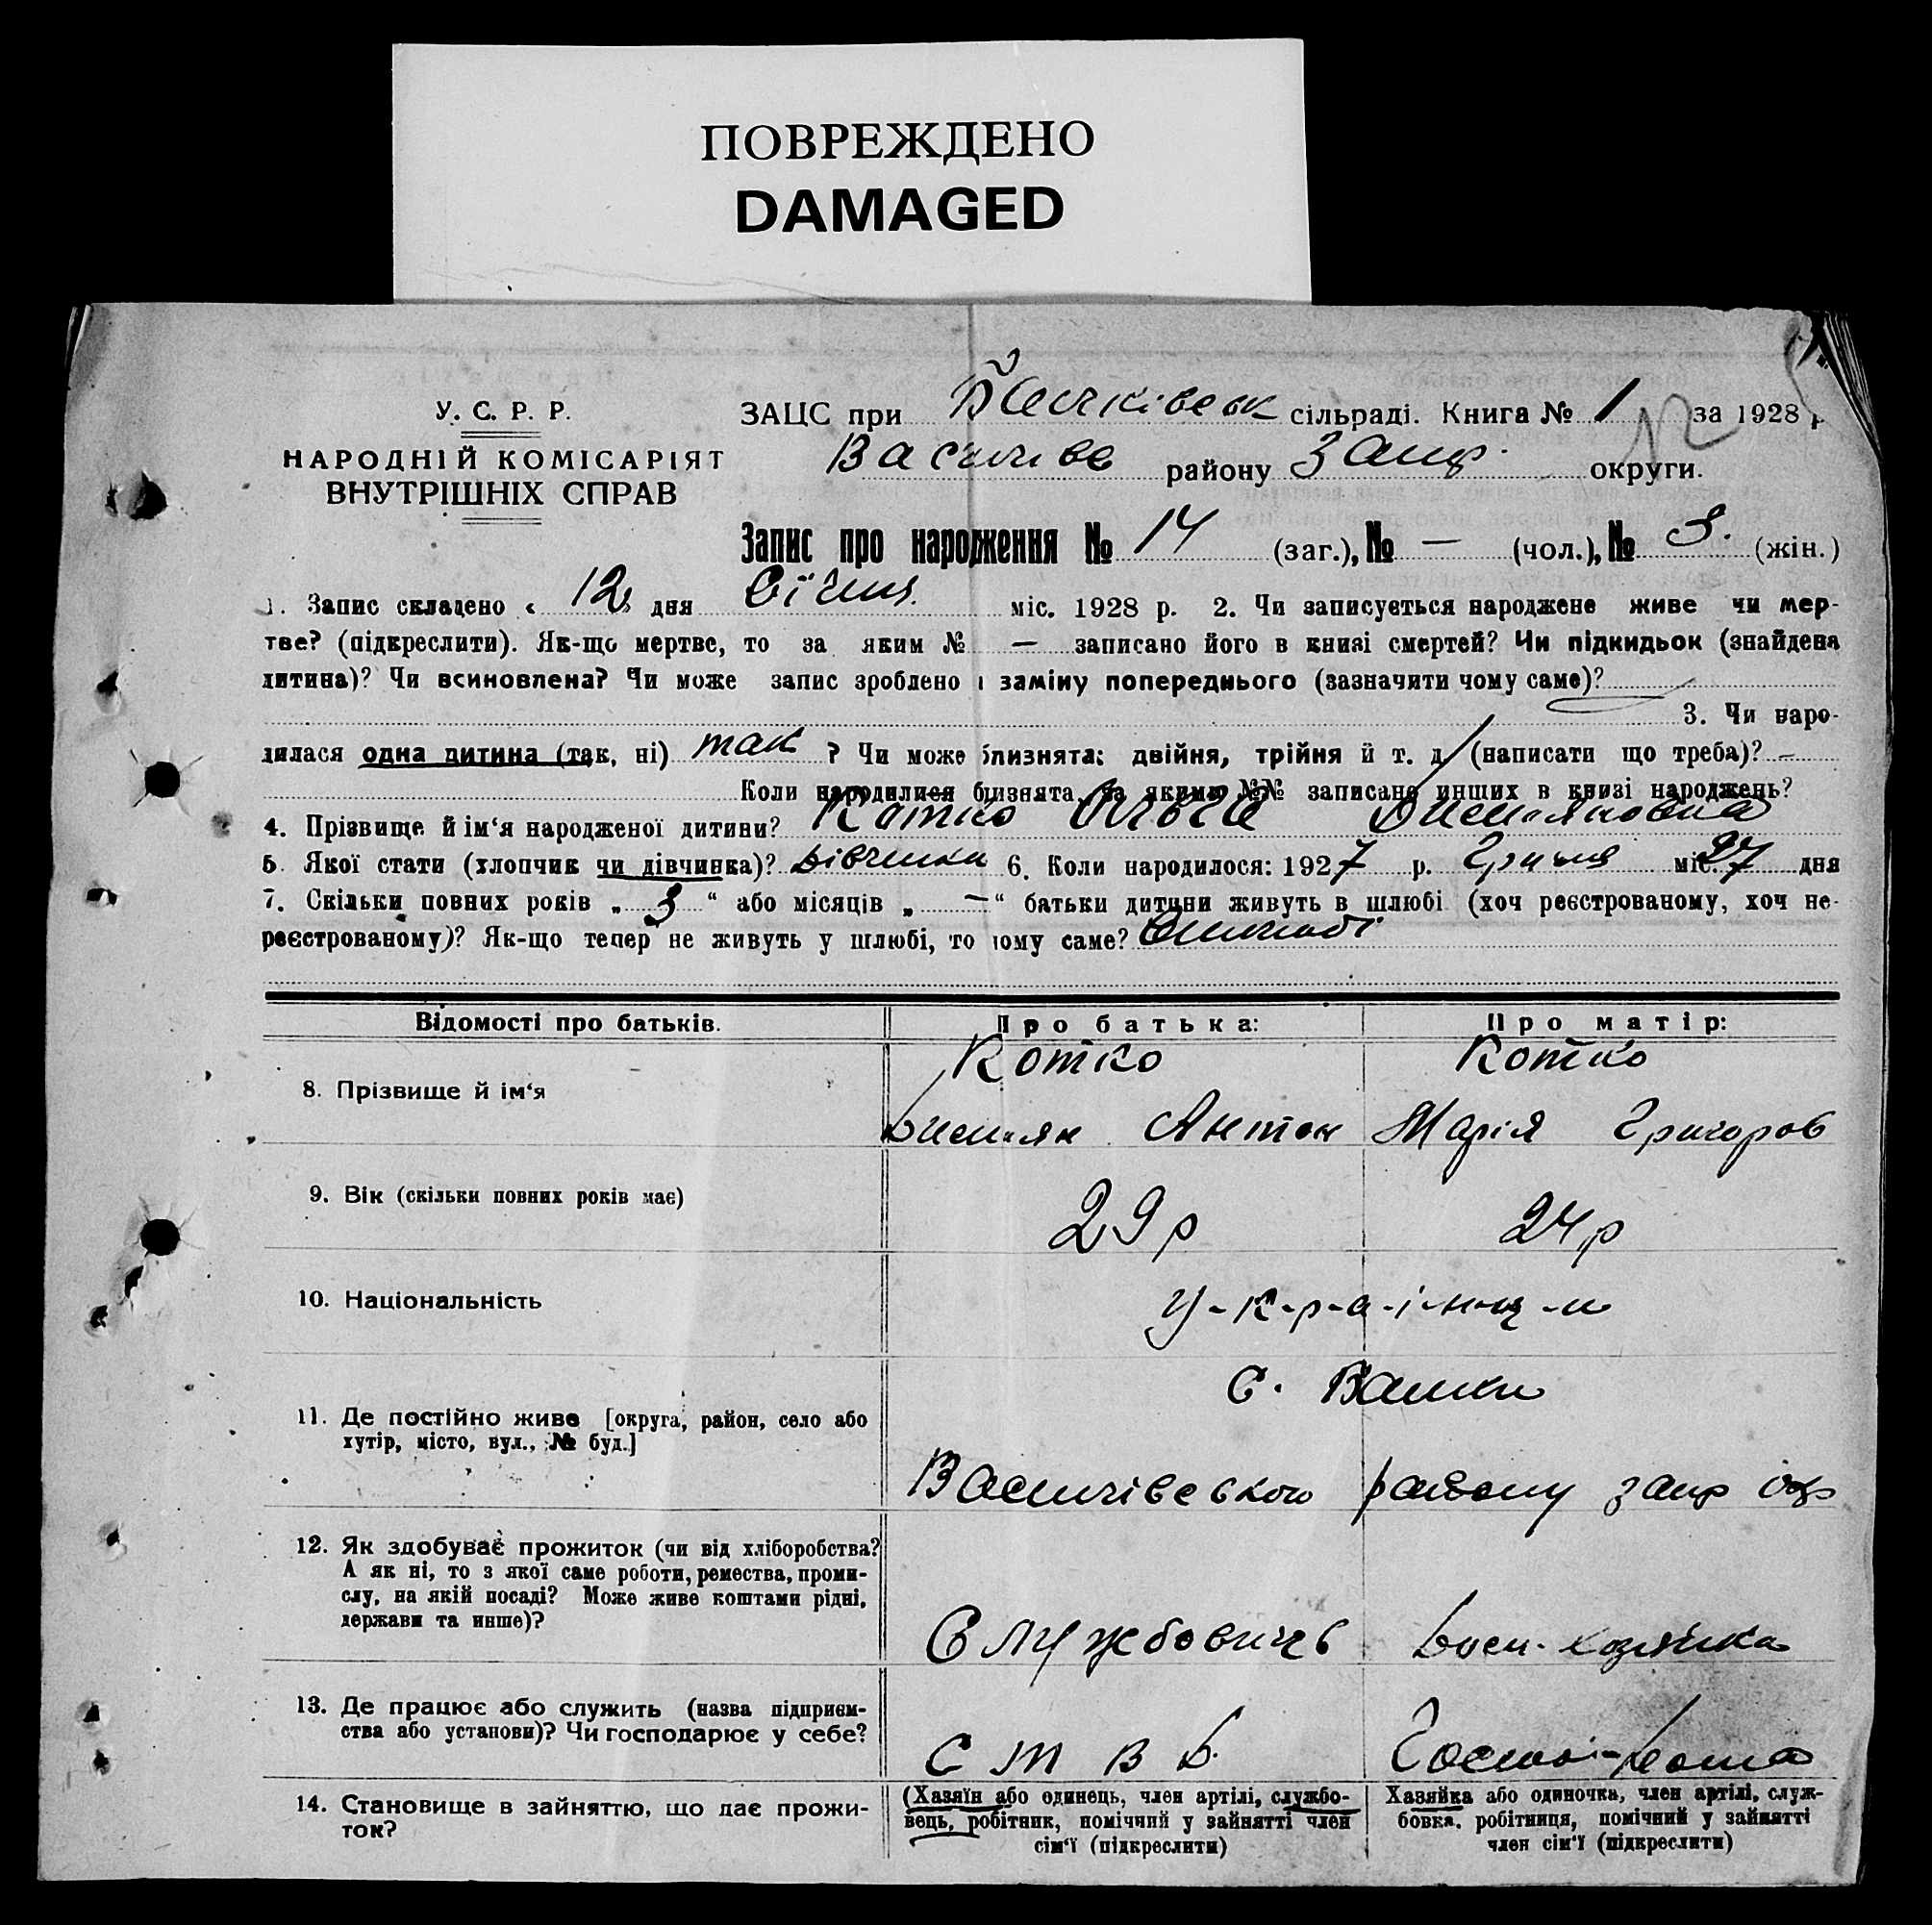 ПОВРЕЖДЕНО
DAMAGED
У. С. Р. Р.
НАРОДНІЙ КОМІСАРІЯТ
ВНУТРІШНІХ СПРАВ
ЗАЦС при сільраді. Книга № 1 за 1928 р
району Запор. округи.
Запис про народження № 14 (заг.), № — (чол.), № 3. (жін.)
1. Запис складено « 12 » дня Січня міс. 1928 р. 2. Чи записується народжене живе чи мер-
тве? (підкреслити). Як-що мертве, то за яким № — записано його в книзі смертей? Чи підкидьок (знайдена
дитина)? Чи всиновлена? Чи може запис зроблено заміну попереднього (зазначити чому саме)?
3. Чи наро-
дилася одна дитина (так, ні) так ? Чи може близнята: двійня, трійня й т. д. (написати що треба)? —
Коли народилися близнята, за якими №№ записано инших в книзі народжень?
4. Прізвище й ім'я народженої дитини? Котко Ольга Димяновна
5. Якої стати (хлопчик чи дівчинка)? Дівчинка 6. Коли народилося: 1927 р. Грудня міс. 27 дня
7. Скільки повних років „ 3 “ або місяців „ — “ батьки дитини живуть в шлюбі (хоч реєстрованому, хоч не-
реєстрованому)? Як-що тепер не живуть у шлюбі, то чому саме?
Відомості про батьків.
Про батька:
Про матір:
8. Прізвище й ім'я
Котко
Димян Антон
Котко
Марія Григоров
9. Вік (скільки повних років має)
29 р
24 р
10. Національність
у-к-р-а-і-н-ц-и
11. Де постійно живе [округа, район, село або
хутір, місто, вул., № буд.]
С.
Василівського району запор окр
12. Як здобуває прожиток (чи від хліборобства?
А як ні, то з якої саме роботи, ремества, проми-
слу, на якій посаді? Може живе коштами рідні,
держави та инше)?
Службовиць
Дом. хозяйка
13. Де працює або служить (назва підприєм-
ства або установи)? Чи господарює у себе?
С т в
дома
14. Становище в зайняттю, що дає прожи-
ток?
(Хазяїн або одинець, член артілі, службо-
вець, робітник, помічний у зайнятті член
сім'ї (підкреслити)
Хазяйка або одиночка, член артілі, служ-
бовка, робітниця, помічний у зайнятті
член сім'ї (підкреслити)